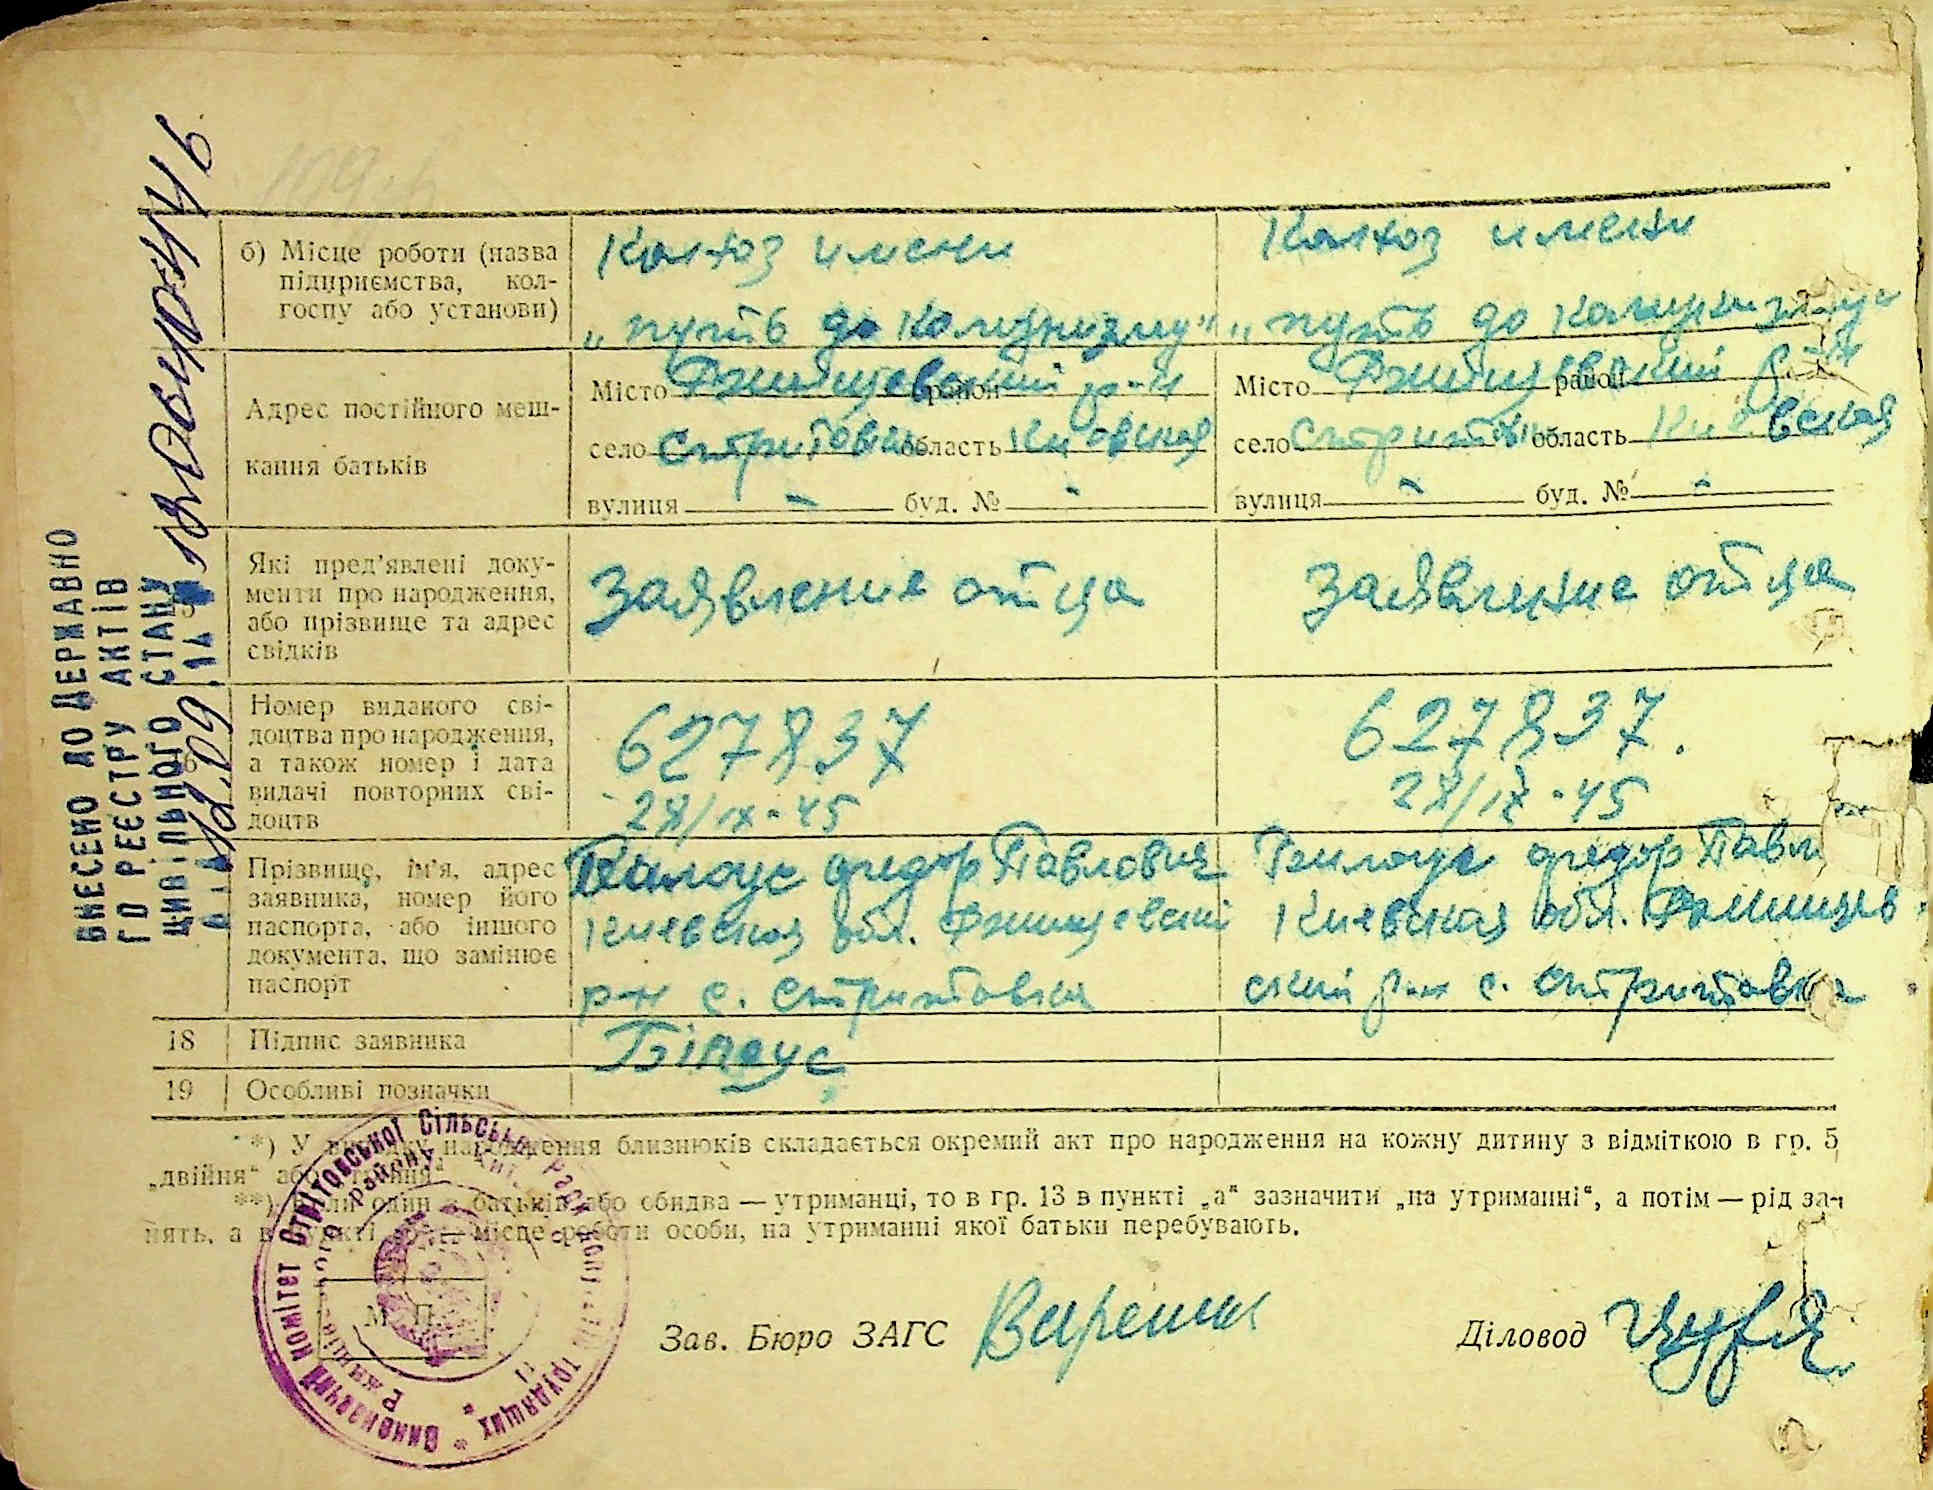 б) Місце роботи (назва
підприємства, кол-
госпу або установи)
Колхоз имени
„путь до Комунизму"
Колхоз имени
„путь до Комунизму
Адрес постійного меш-
кання батьків
Місто Ржищевский район р-н
село Стритовка область Киевская
вулиця - буд. № -
Місто Ржищевский район р-н
село Стритовка область Киевская
вулиця - буд. № -
Які пред'явлені доку-
менти про народження,
або прізвище та адрес
свідків
Заявление отца
Заявление отца
Номер виданого сві-
доцтва про народження,
а також номер і дата
видачі повторних сві-
доцтв
627837
28/IX-45
627837.
28/IX-45
Прізвище, ім'я, адрес
заявника, номер його
паспорта, або іншого
документа, що замінює
паспорт
Билоус Федор Павлович
Киевская обл. Ржищевский
р-н с. Стритовка
Билоус Федор Павл
Киевская обл. Ржищев
ский р-н с. Стритовка
18 Підпис заявника
Білоус
19 Особливі позначки
*) У випадку народження близнюків складається окремий акт про народження на кожну дитину з відміткою в гр. 5
„двійня" або „тройня"
**) Коли один з батьків або обидва — утриманці, то в гр. 13 в пункті „а" зазначити „на утриманні", а потім — рід за-
нять, а в пункті місце роботи особи, на утриманні якої батьки перебувають.
М. П.
Зав. Бюро ЗАГС
Діловод
ВНЕСЕНО ДО ДЕРЖАВНО
ГО РЕЄСТРУ АКТІВ
ЦИВІЛЬНОГО СТАНУ
12.09.14
Виконавчий Комітет Стрітовської Сільської Ради депутатів трудящих
Ржищівського району